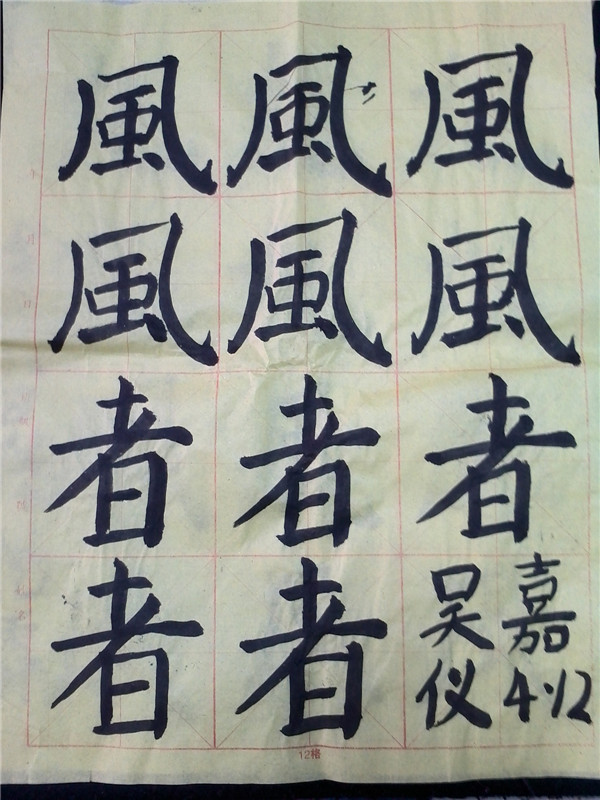 風風風
風風風
者者者
者者
吴嘉
仪4.12
12格